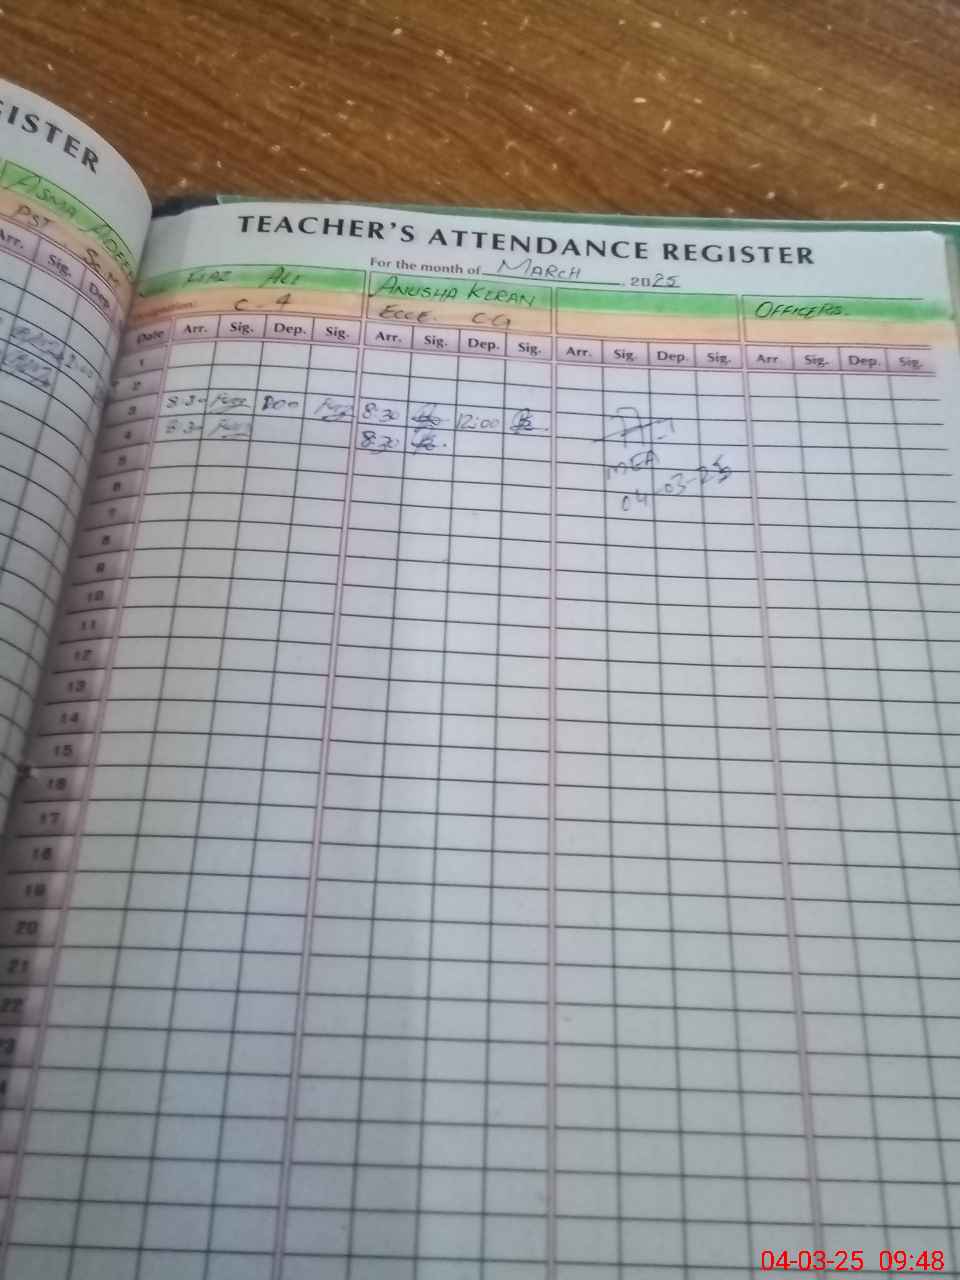 GISTER
ASMA
PST
Arr. Sig. Dep
TEACHER'S ATTENDANCE REGISTER
For the month of MARCH 2025
ALI ANUSHA KIRAN OFFICERS.
C-4 ECCE. CG
Date Arr. Sig. Dep. Sig. Arr. Sig. Dep. Sig. Arr. Sig. Dep. Sig. Arr. Sig. Dep. Sig.
1
2
3 8:30 8:30 12:00
4 8:30 8:30
MEA
5
04-03-25
6
7
8
9
10
11
12
13
14
15
16
17
18
19
20
21
22
04-03-25 09:48